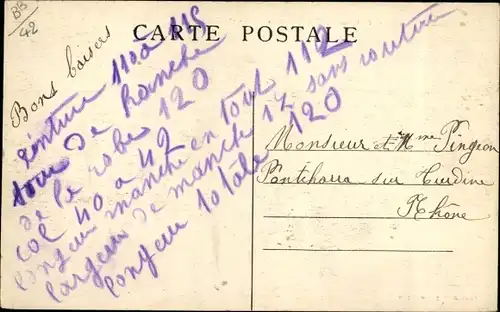 BB
42
CARTE POSTALE
Bons baisers
ceinture 110 à 115
tour de hanche
de la robe 120
col 40 à 42
longeur manche en tout 112
largeur de manche 17 sans couture
longeur totale 120
Monsieur et Mme Pingeon
Pontcharra sur Turdine
Rhône